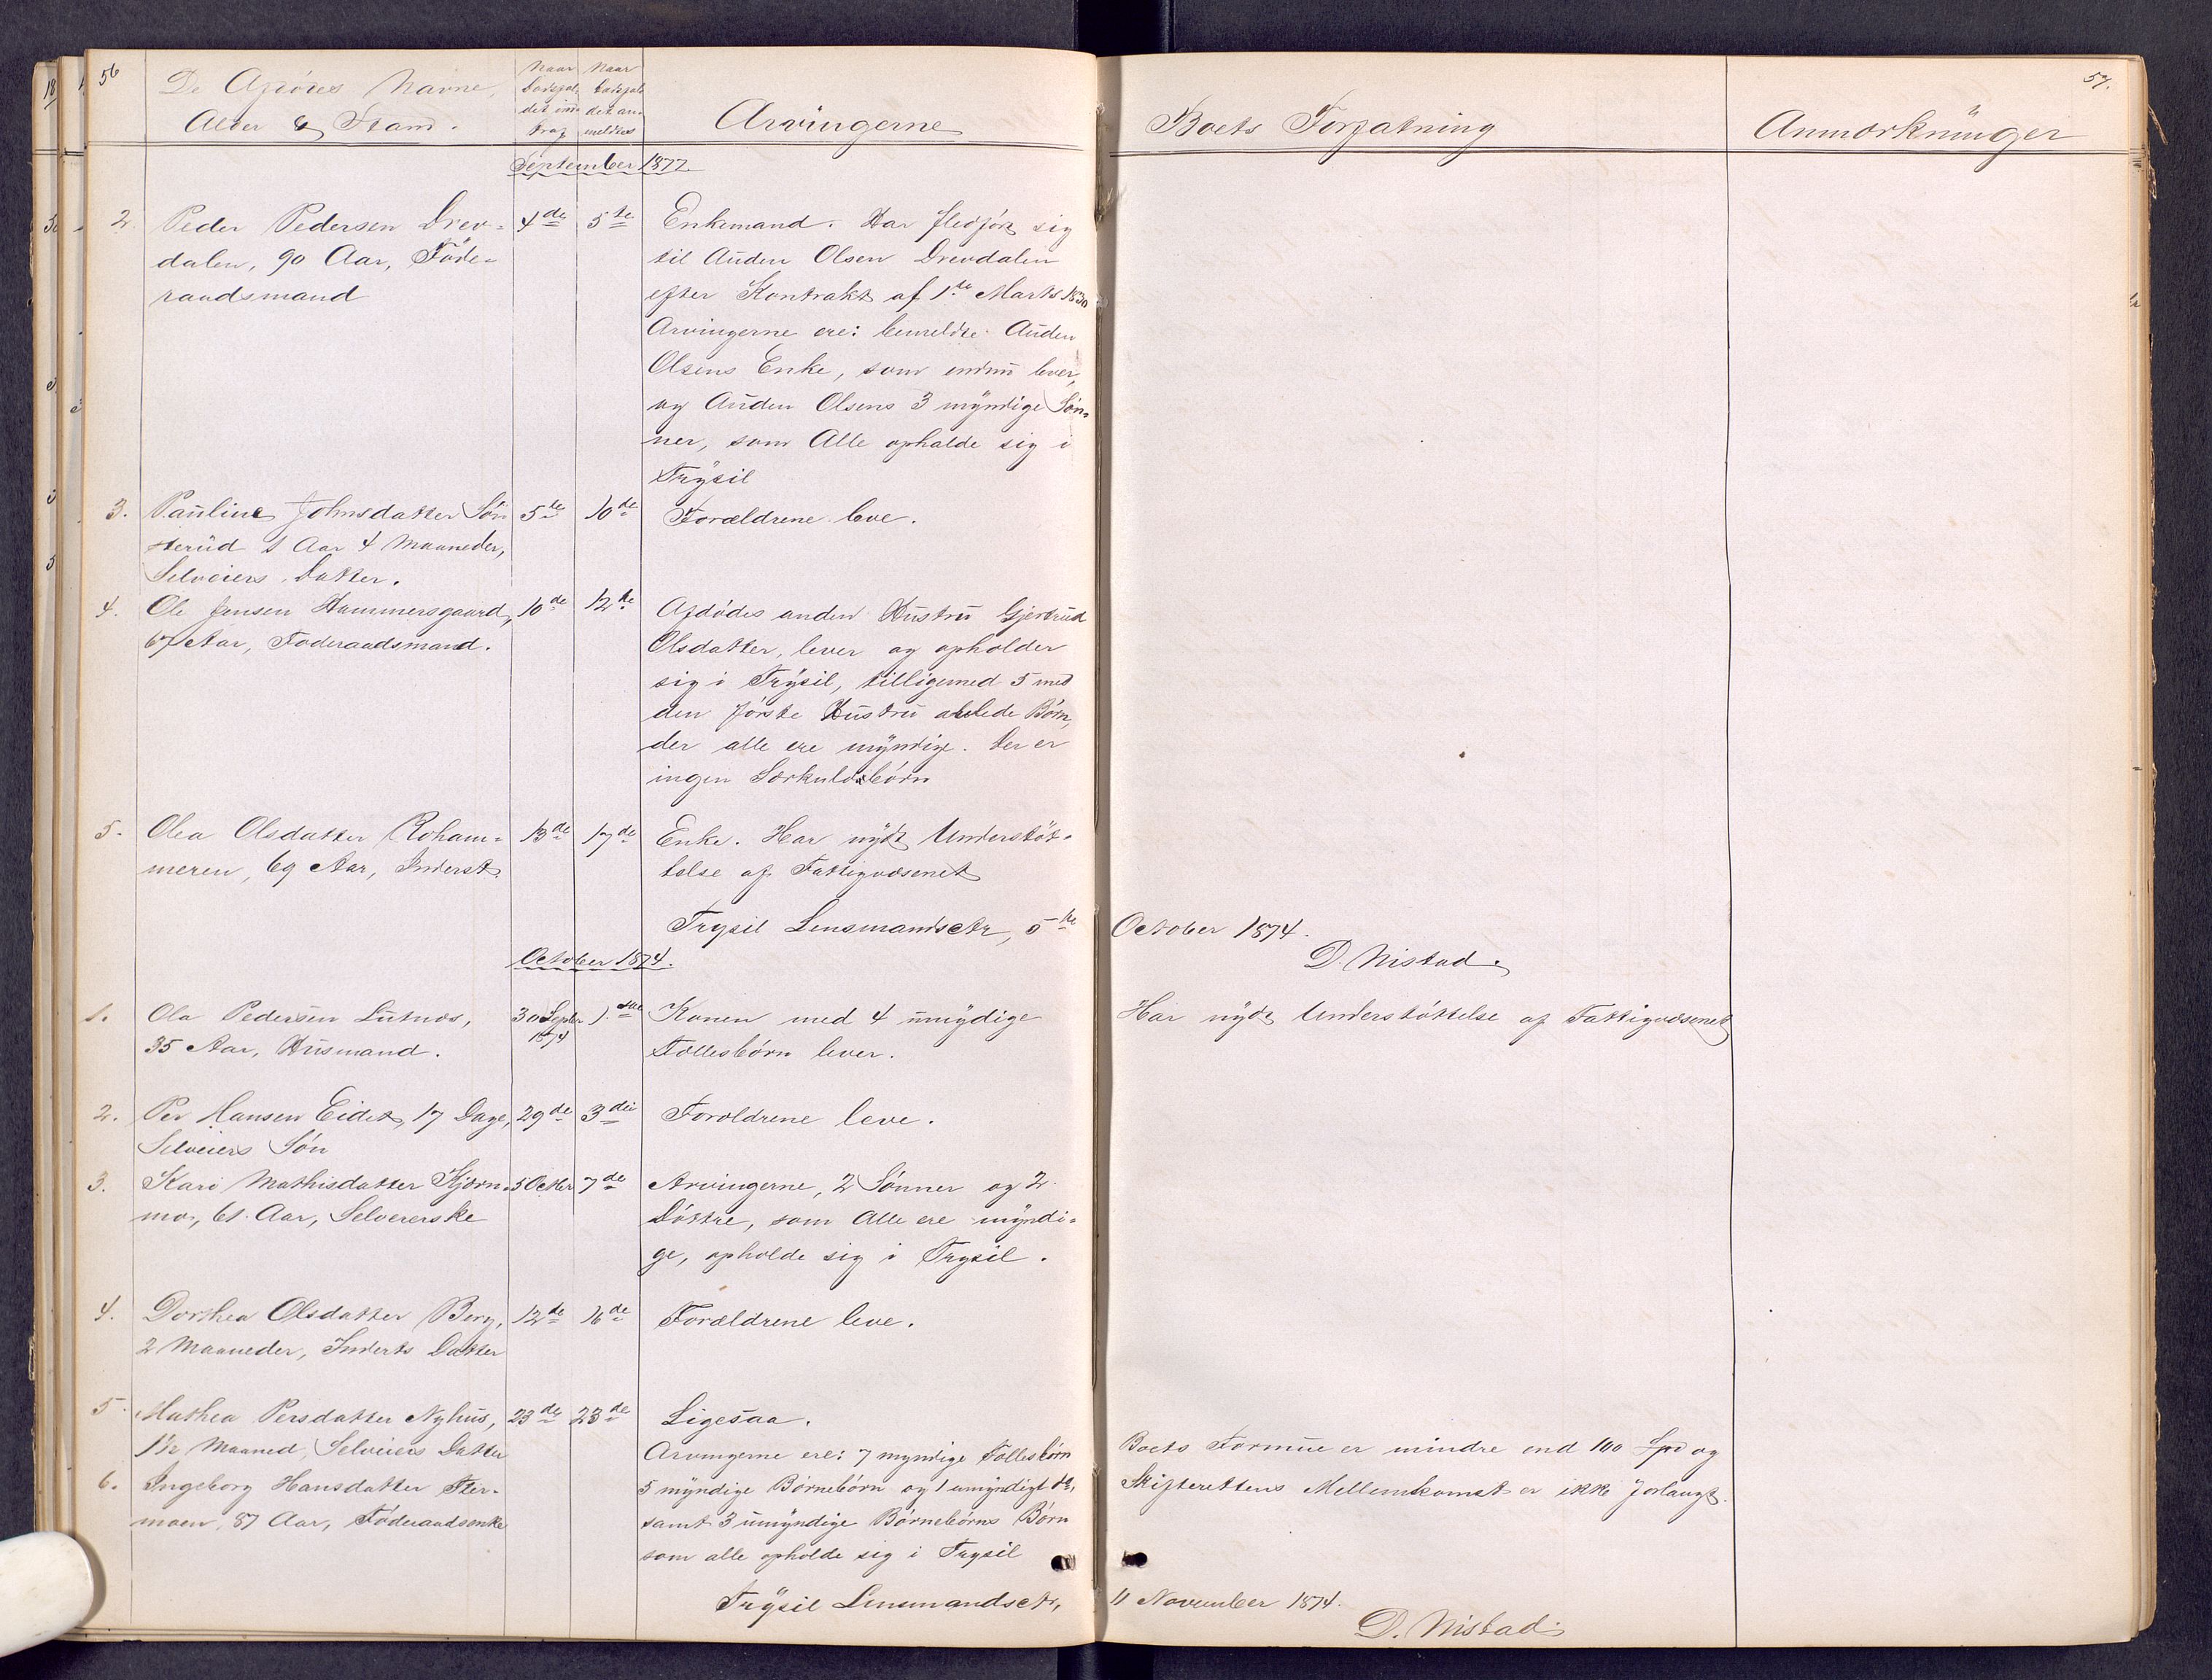 56
De Afdödes Navne,
Alder & Stand.
Naar
Dødsfal-
det ind-
traf
Naar
Dødsfal-
det an-
meldtes
Arvingerne
Boets Forfatning
Anmærkninger
57.
September 1877
2. Peder Pedersen Drev- 4de 5te Enkemand. Har fledført sig
dalen, 90 Aar, Føde- til Auden Olsen Drevdalen
raadsmand efter Kontrakt af 1ste Marts 1830
Arvingerne ere: bemeldte Auden
Olsens Enke, som endnu lever,
og Auden Olsens 3 myndige Søn-
ner, som Alle opholde sig i
Trysil
3. Pauline Johnsdatter Søn 5te 10de Forældrene leve.
sterud 1 Aar 4 Maaneder,
Selveiers Datter.
4. Ole Jensen Hammersgaard, 10de 12te Afdødes anden Hustru Gjertrud
67 Aar, Føderaadsmand. Olsdatter, lever og opholder
sig i Trysil, tilligemed 5 med
den første Hustru avlede Børn,
der alle ere myndige. Der er
ingen Særkuldsbørn
5. Olea Olsdatter Roham- 13de 17de Enke. Har nydt Understøt-
meren, 69 Aar, Inderst telse af Fattigvæsenet
Trysil Lensmandsctr, 5te October 1874.
D. Nistad.
October 1874.
1. Ola Pedersen Lutnæs, 30 Septbr 1ste Konen med 4 umydige Har nydt Understøttelse af Fattigvæsenet
35 Aar, Husmand. 1874 Fællesbørn lever.
2. Per Hansen Eidet, 17 Dage, 29de 3die Forældrene leve.
Selveiers Søn
3. Kari Mathisdatter Kjørn- 5 Octbr 7de Arvingerne, 2 Sønner og 2
mo, 61 Aar, Selveierske Døttre, som Alle ere myndi-
ge, opholde sig i Trysil.
4. Dorthea Olsdatter Berg, 12de 16de Forældrene leve.
2 Maaneder, Inderts Datter
5. Mathea Persdatter Nyhus, 23de 23de Ligesaa.
1½ Maaned, Selveiers Datter Arvingerne ere: 7 myndige Fællesbørn Boets Formue er mindre end 100 Spd og
6. Ingeborg Hansdatter Fler- 5 myndige Børnebørn og 1 umyndigt do, Skifterettens Mellemkomst er ikke forlangt.
moen, 87 Aar, Føderaadsenke samt 3 umyndige Børnebørns Børn
som alle opholde sig i Trysil
Trysil Lensmandsctr, 11 November 1874.
D. Nistad.